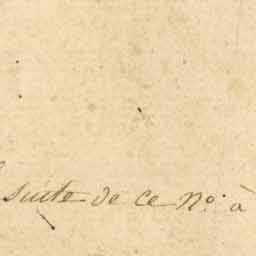 suite de ce No. à